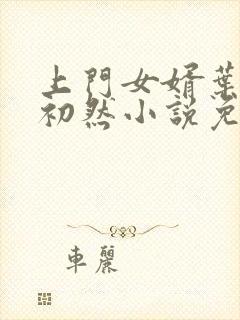 上門女婿葉
初然小說免
車麗